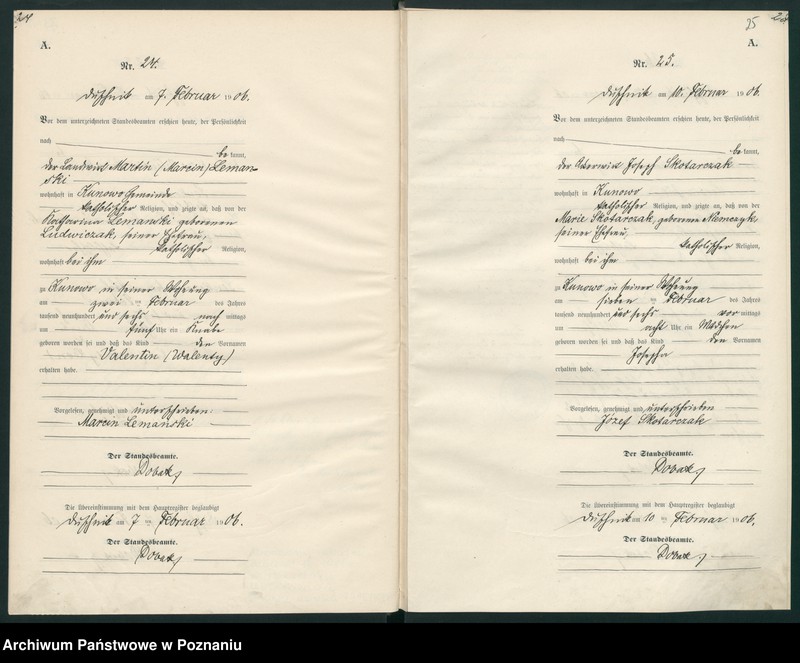 24
A.
Nr. 24.
Duschnik am 7. Februar 1906.
Vor dem unterzeichneten Standesbeamten erschien heute, der Persönlichkeit
nach
bekannt,
der Landwirt Martin (Marcin) Leman-
ski
wohnhaft in Kunowo Gemeinde
katholischer Religion, und zeigte an, daß von der
Katharina Lemanski geborenen
Ludwiczak, seiner Ehefrau,
katholischer Religion,
wohnhaft bei ihm
zu Kunowo in seiner Wohnung
am zwei ten Februar des Jahres
tausend neunhundert und sechs nach mittags
um fünf Uhr ein Knabe
geboren worden sei und daß das Kind den Vornamen
Valentin (Walenty)
erhalten habe.
Vorgelesen, genehmigt und unterschrieben
Marcin Lemański
Der Standesbeamte.
Die Übereinstimmung mit dem Hauptregister beglaubigt
Duschnik am 7 ten Februar 1906.
Der Standesbeamte.
25
A.
Nr. 25.
Duschnik am 10. Februar 1906.
Vor dem unterzeichneten Standesbeamten erschien heute, der Persönlichkeit
nach
bekannt,
der Joseph Skotarczak
wohnhaft in Kunowo
katholischer Religion, und zeigte an, daß von der
Marie Skotarczak, geborene Niemczyk
seiner Ehefrau,
katholischer Religion,
wohnhaft bei ihm
zu Kunowo in seiner Wohnung
am sieben ten Februar des Jahres
tausend neunhundert und sechs vor mittags
um acht Uhr ein Mädchen
geboren worden sei und daß das Kind den Vornamen
Josepha
erhalten habe.
Vorgelesen, genehmigt und unterschrieben
Józef Skotarczak
Der Standesbeamte.
Die Übereinstimmung mit dem Hauptregister beglaubigt
Duschnik am 10 ten Februar 1906.
Der Standesbeamte.
Archiwum Państwowe w Poznaniu